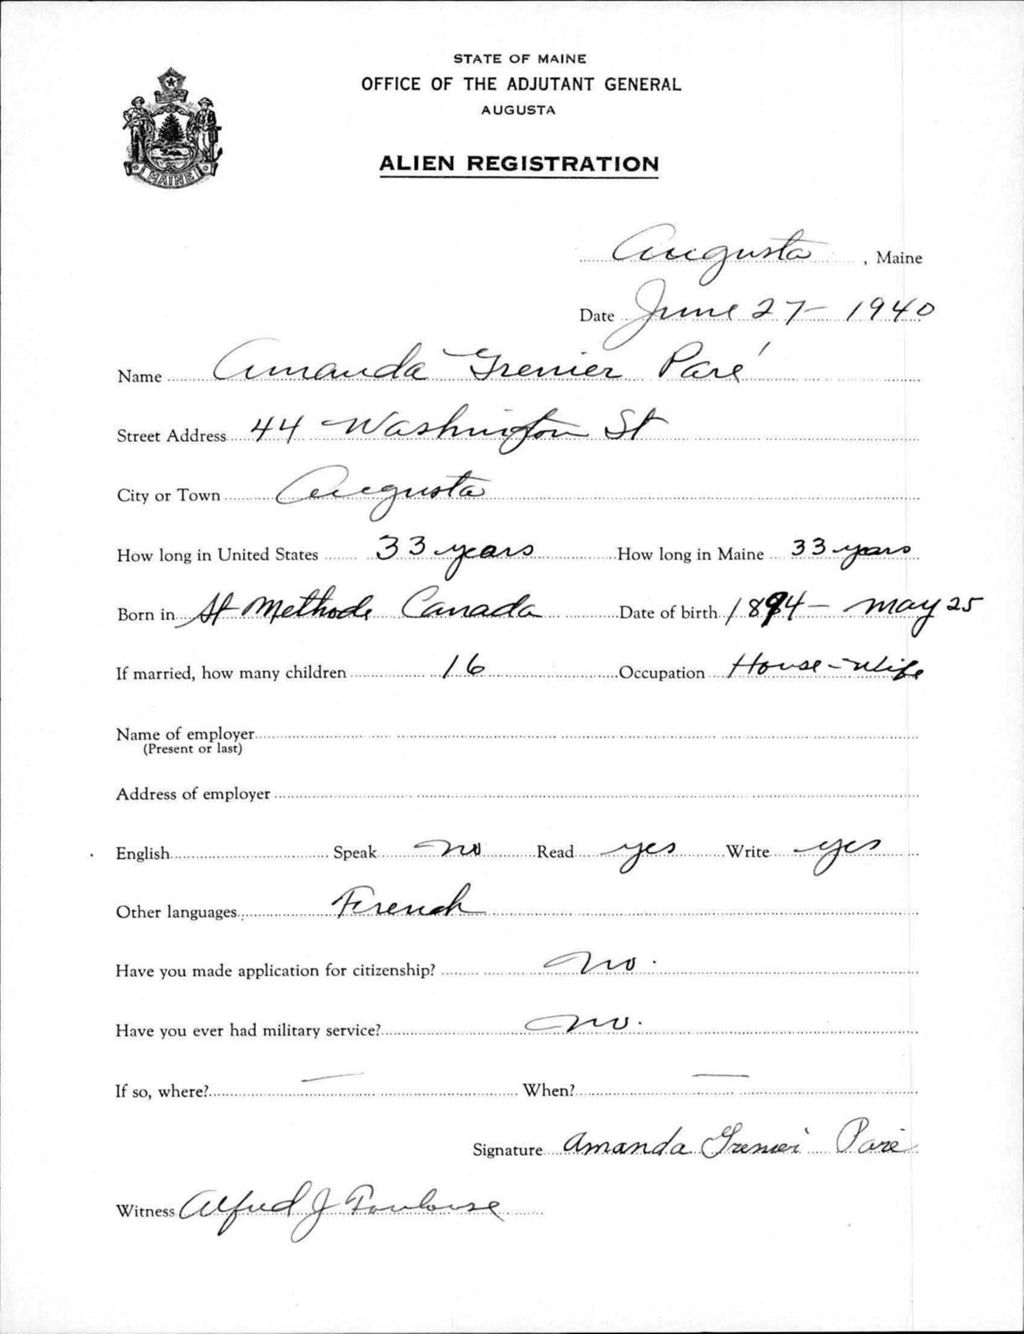 STATE OF MAINE
OFFICE OF THE ADJUTANT GENERAL
AUGUSTA
ALIEN REGISTRATION
MAINE
Augusta, Maine
Date June 27 - 1940
Name Amanda Grenier Paré
Street Address 44 Washington St
City or Town Augusta
How long in United States 33 years How long in Maine 33 years
Born in St Methode Canada Date of birth 1894 - May 25
If married, how many children 16 Occupation House-Wife
Name of employer
(Present or last)
Address of employer
English Speak no Read yes Write yes
Other languages French
Have you made application for citizenship? No.
Have you ever had military service? No.
If so, where? — When? —
Signature Amanda Grenier Paré
Witness Alfred J Toulouse